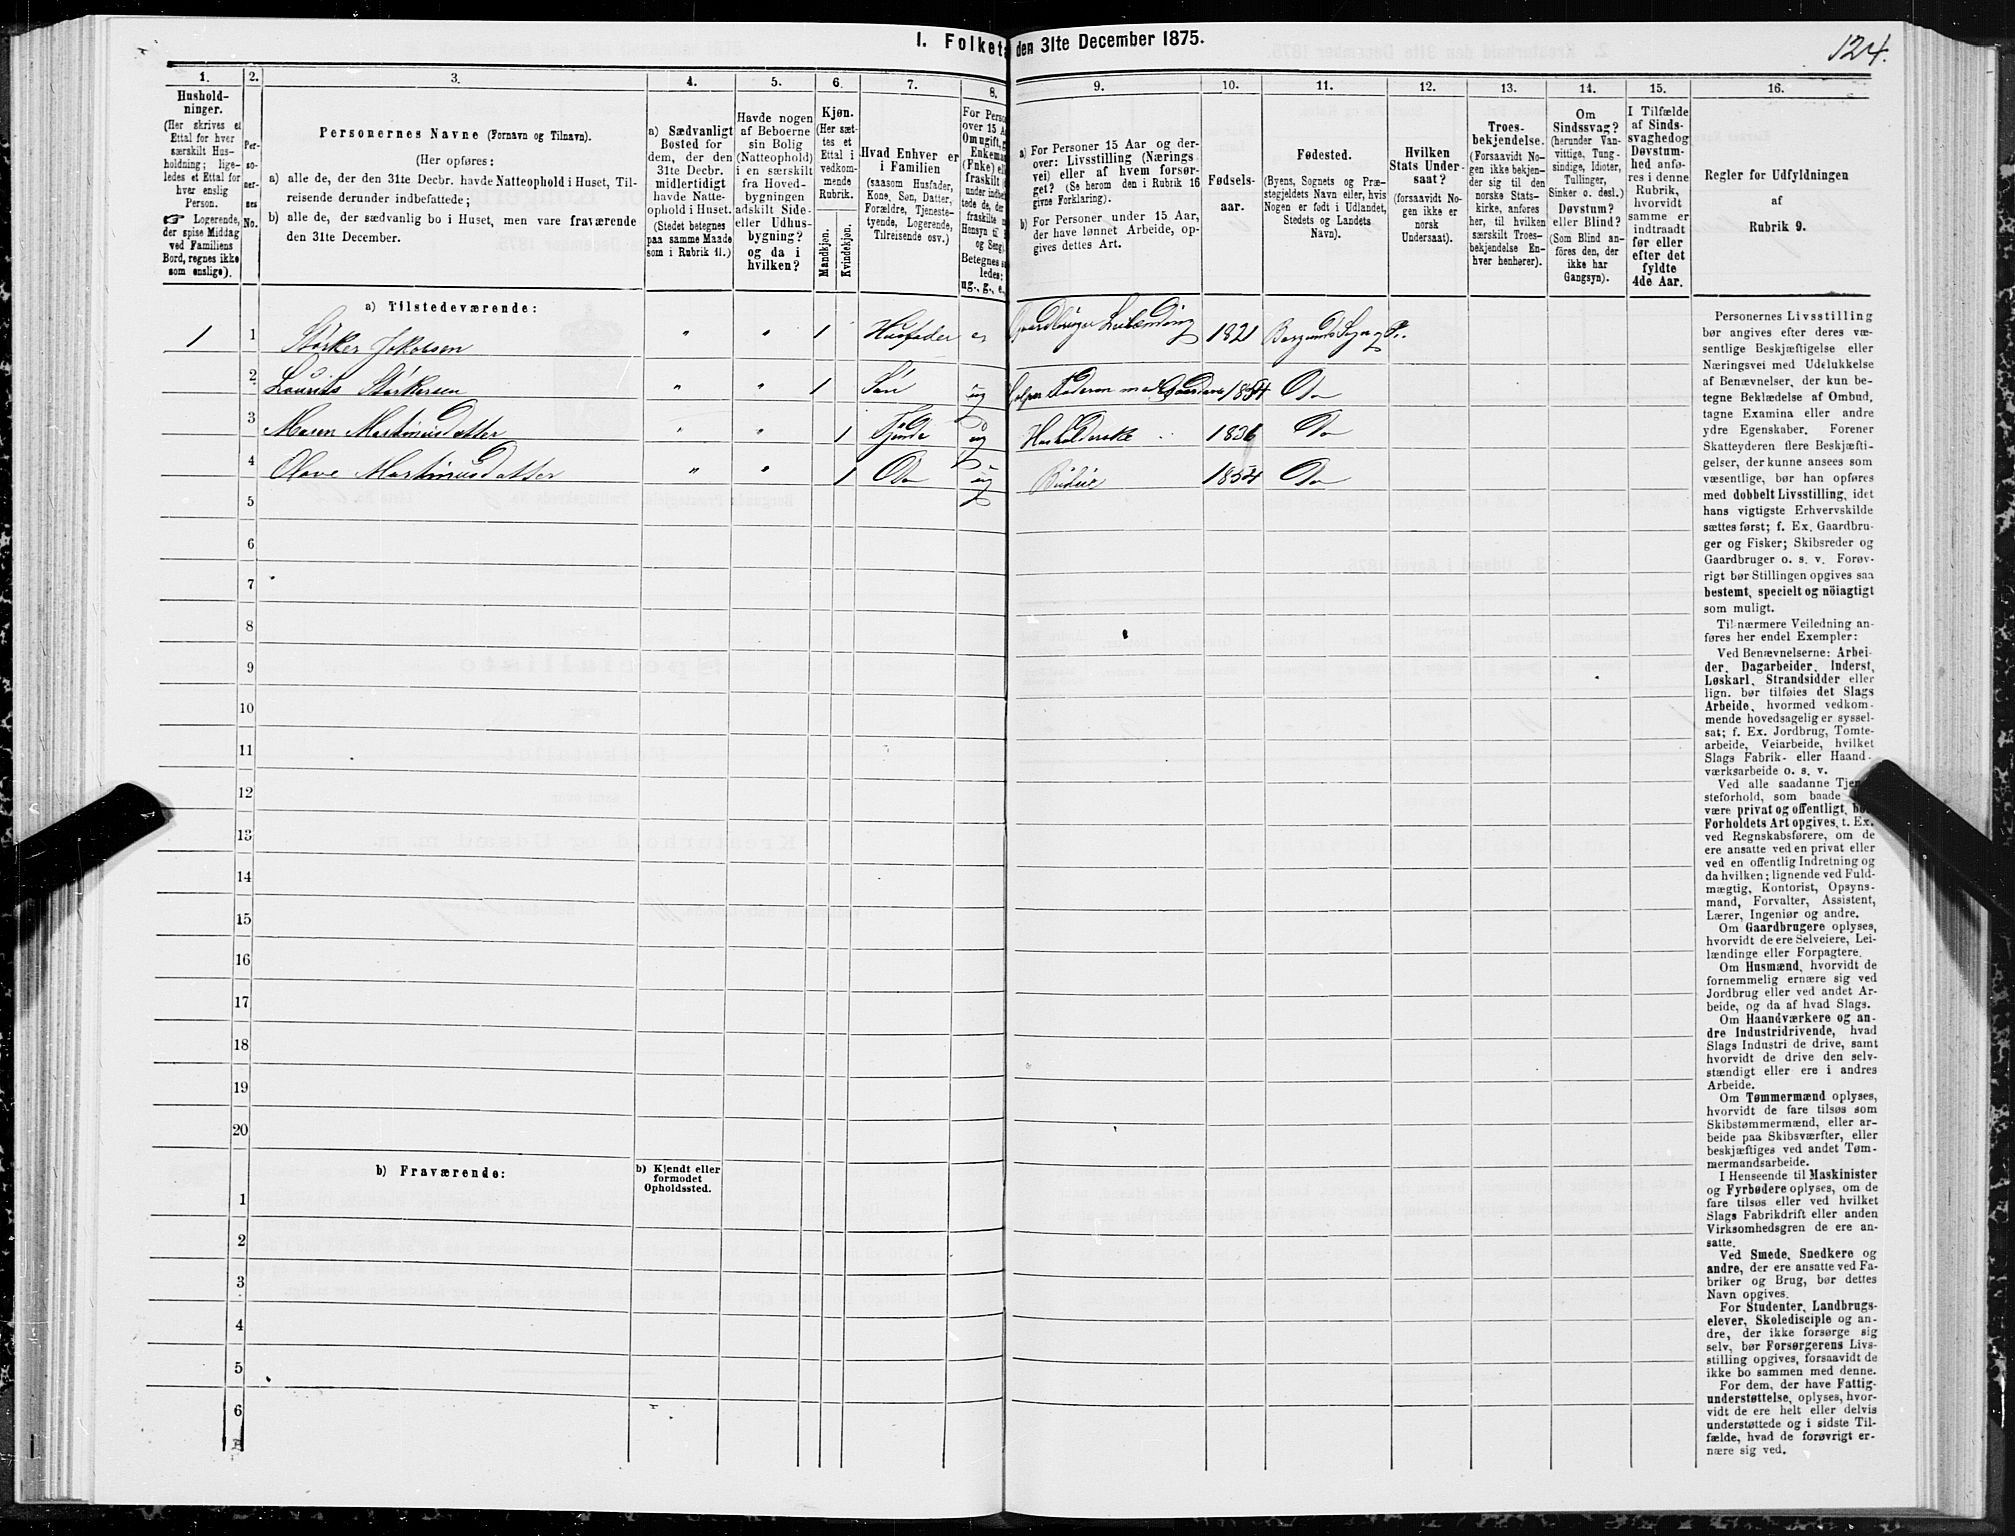 124.
I. Folketæ den 31te December 1875.
1.
Hushold-
ninger.
(Her skrives et
Ettal for hver
særskilt Hus-
holdning; lige-
ledes et Ettal for
hver enslig
Person.
☞ Logerende,
der spise Middag
ved Familiens
Bord, regnes ikke
som enslige).
2.
Per-
so-
ner-
nes
No.
3.
Personernes Navne (Fornavn og Tilnavn).
(Her opføres:
a) alle de, der den 31te Decbr. havde Natteophold i Huset, Til-
reisende derunder indbefattede;
b) alle de, der sædvanlig bo i Huset, men vare fraværende
den 31te December.
4.
a) Sædvanligt
Bosted for
dem, der den
31te Decbr.
midlertidigt
havde Natte-
ophold i Huset.
(Stedet betegnes
paa samme Maade
som i Rubrik 11.)
5.
Havde nogen
af Beboerne
sin Bolig
(Natteophold)
i en særskilt
fra Hoved-
bygningen
adskilt Side-
eller Udhus-
bygning?
og da i
hvilken?
6.
Kjøn.
(Her sæt-
tes et
Ettal i
vedkom-
mende
Rubrik.
Mandkjøn.
Kvindekjøn.
7.
Hvad Enhver er
i Familien
(saasom Husfader,
Kone, Søn, Datter,
Forældre, Tjeneste-
tyende, Logerende,
Tilreisende osv.)
8.
For Perso
over 15 Aa
Om ugift, g
Enkema
(Enke) el
fraskilt
under indbe
tede de, der
fraskilte
Hensyn til
og Seng).
Betegnes s
ledes:
ug., g., e.,
9.
a) For Personer 15 Aar og der-
over: Livsstilling (Nærings
vei) eller af hvem forsør-
get? (Se herom den i Rubrik 16
givne Forklaring).
b) For Personer under 15 Aar,
der have lønnet Arbeide, op-
gives dettes Art.
10.
Fødsels-
aar.
11.
Fødested.
(Byens, Sognets og Præ-
stegjeldets Navn eller, hvis
Nogen er født i Udlandet,
Stedets og Landets
Navn).
12.
Hvilken
Stats Under-
saat?
(forsaavidt No-
gen ikke er
norsk
Undersaat).
13.
Troes-
bekjendelse.
(Forsaavidt No-
gen ikke bekjen-
der sig til den
norske Stats-
kirke, anføres
her, til hvilken
særskilt Troes-
bekjendelse En-
hver henhører).
14.
Om
Sindssvag?
(herunder Van-
vittige, Tung-
sindige, Idioter,
Tullinger,
Sinker o. desl.)
Døvstum?
eller Blind?
(Som Blind an-
føres den, der
ikke har
Gangsyn).
15.
I Tilfælde
af Sinds-
svaghed og
Døvstum-
hed anfø-
res i denne
Rubrik,
hvorvidt
samme er
indtraadt
før eller
efter det
fyldte
4de Aar.
16.
Regler for Udfyldningen
af
Rubrik 9.
a) Tilstedeværende:
1 1 Størker Jakobsen " " 1 Husfader e Gaardbruger Leilænding 1821 Borgunds Sogn og Pr.
2 Laurits Størkersen " " 1 Søn ug Hjelper Faderen med Gaardens 1854 Do
3 Maren Martinusdatter " " 1 Tjende ug Husholderske 1836 Do
4 Olave Martinusdatter " " 1 Do ug Budeie 1854 Do
5
6
7
8
9
10
11
12
13
14
15
16
17
18
19
20
b) Fraværende:
b) Kjendt eller
formodet
Opholdssted.
1
2
3
4
5
6
Personernes Livsstilling
bør angives efter deres væ-
sentlige Beskjæftigelse eller
Næringsvei med Udelukkelse
af Benævnelser, der kun be-
tegne Beklædelse af Ombud,
tagne Examina eller andre
ydre Egenskaber. Forener
Skatteyderen flere Beskjæfti-
gelser, der kunne ansees som
væsentlige, bør han opføres
med dobbelt Livsstilling, idet
hans vigtigste Erhvervskilde
sættes først; f. Ex. Gaardbru-
ger og Fisker; Skibsreder og
Gaardbruger o. s. v. Forøv-
rigt bør Stillingen opgives saa
bestemt, specielt og nöiagtigt
som muligt.
Til nærmere Veiledning an-
føres her endel Exempler:
Ved Benævnelserne: Arbei-
der, Dagarbeider, Inderst,
Løskarl, Strandsidder eller
lign. bør tilføies det Slags
Arbeide, hvormed vedkom-
mende hovedsagelig er syssel-
sat; f. Ex. Jordbrug, Tomte-
arbeide, Veiarbeide, hvilket
Slags Fabrik- eller Haand-
værksarbeide o. s. v.
Ved alle saadanne Tjene-
steforhold, som baade
være privat og offentligt, bør
Forholdets Art opgives, f. Ex.
ved Regnskabsførere, om de
ere ansatte ved en privat eller
ved en offentlig Indretning og
da hvilken; lignende ved Fuld-
mægtig, Kontorist, Opsyns-
mand, Forvalter, Assistent,
Lærer, Ingeniør og andre.
Om Gaardbrugere oplyses,
hvorvidt de ere Selveiere, Lei-
lændinge eller Forpagtere.
Om Husmænd, hvorvidt de
fornemmelig ernære sig ved
Jordbrug eller ved andet Ar-
beide, og da af hvad Slags.
Om Haandværkere og an-
dre Industridrivende, hvad
Slags Industri de drive, samt
hvorvidt de drive den selv-
stændigt eller ere i andres
Arbeide.
Om Tømmermænd oplyses,
hvorvidt de fare tilsøs som
Skibstømmermænd, eller ar-
beide paa Skibsværfter, eller
beskjæftiges ved andet Tøm-
mermandsarbeide.
I Henseende til Maskinister
og Fyrbødere oplyses, om de
fare tilsøs eller ved hvilket
Slags Fabrikdrift eller anden
Virksomhedsgren de ere an-
satte.
Ved Smede, Snedkere og
andre, der ere ansatte ved Fa-
briker og Brug, bør dettes
Navn opgives.
For Studenter, Landbrugs-
elever, Skoledisciple og an-
dre, der ikke forsørge sig
selv, bør Forsørgerens Livs-
stilling opgives, forsaavidt de
ikke bo sammen med denne.
For dem, der have Fattig-
understøttelse, oplyses, hvor-
vidt de ere helt eller delvis
understøttede og i sidste Til-
fælde, hvad de forøvrigt er-
nære sig ved.